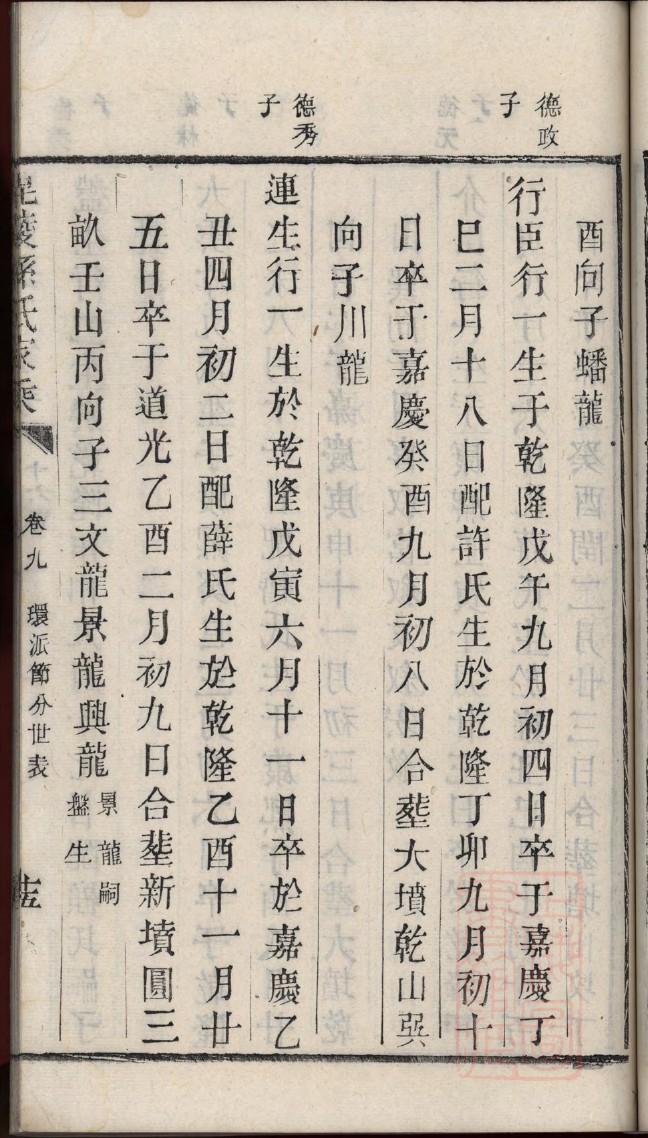 酉向子蟠龍
德政
子
行臣行一生于乾隆戊午九月初四日卒于嘉慶丁
巳二月十八日配許氏生於乾隆丁卯九月初十
日卒于嘉慶癸酉九月初八日合塟大墳乾山巽
向子川龍
德秀
子
連生行一生於乾隆戊寅六月十一日卒於嘉慶乙
丑四月初二日配薛氏生於乾隆乙酉十一月廿
五日卒于道光乙酉二月初九日合塟新墳圓三
畝壬山丙向子三文龍景龍興龍
景龍嗣
盤生
毘陵孫氏家乘
卷九
環派節分世表